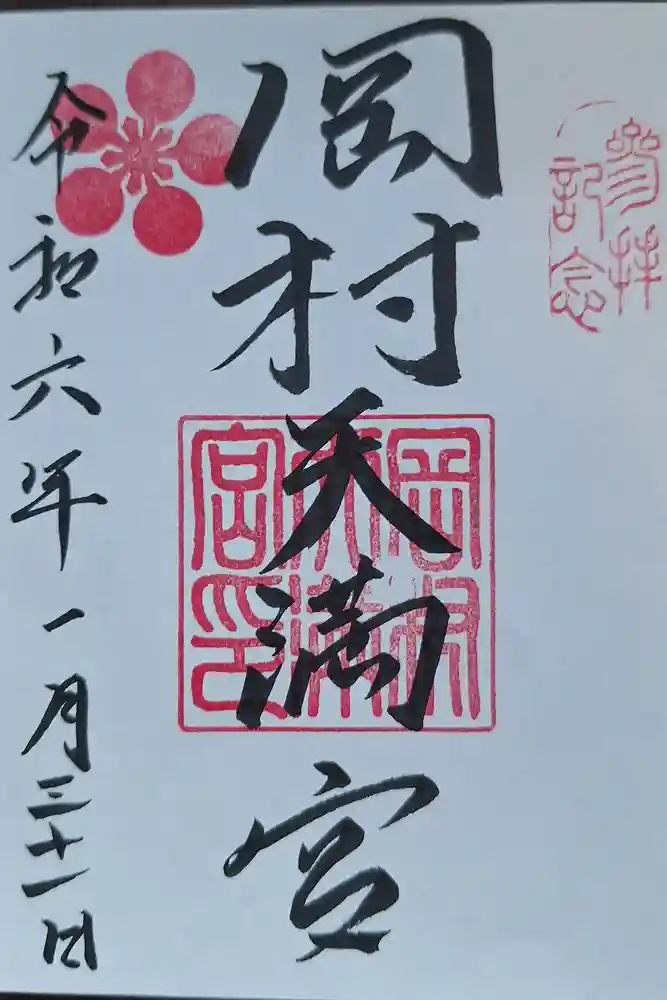 參拝
記念
岡村天満宮
岡村
天満
宮印
令和六年一月三十一日